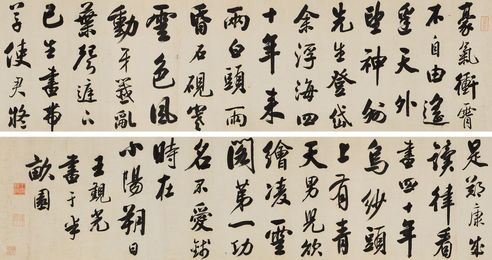 豪氣衝霄
不自由遙
天外
望神州
先生登岱
余浮海四
十年來
兩白頭雨
昏石硯寒
雲色風
動牙籤亂
葉聲庭下
已生書帶
草使君將
是鄭康成
讀律看
書四十年
烏紗頭
上有青
天男兒欲
繪凌雲
閣第一功
名不愛錢
時在
小陽朔日
王觀光
書于半
畝園